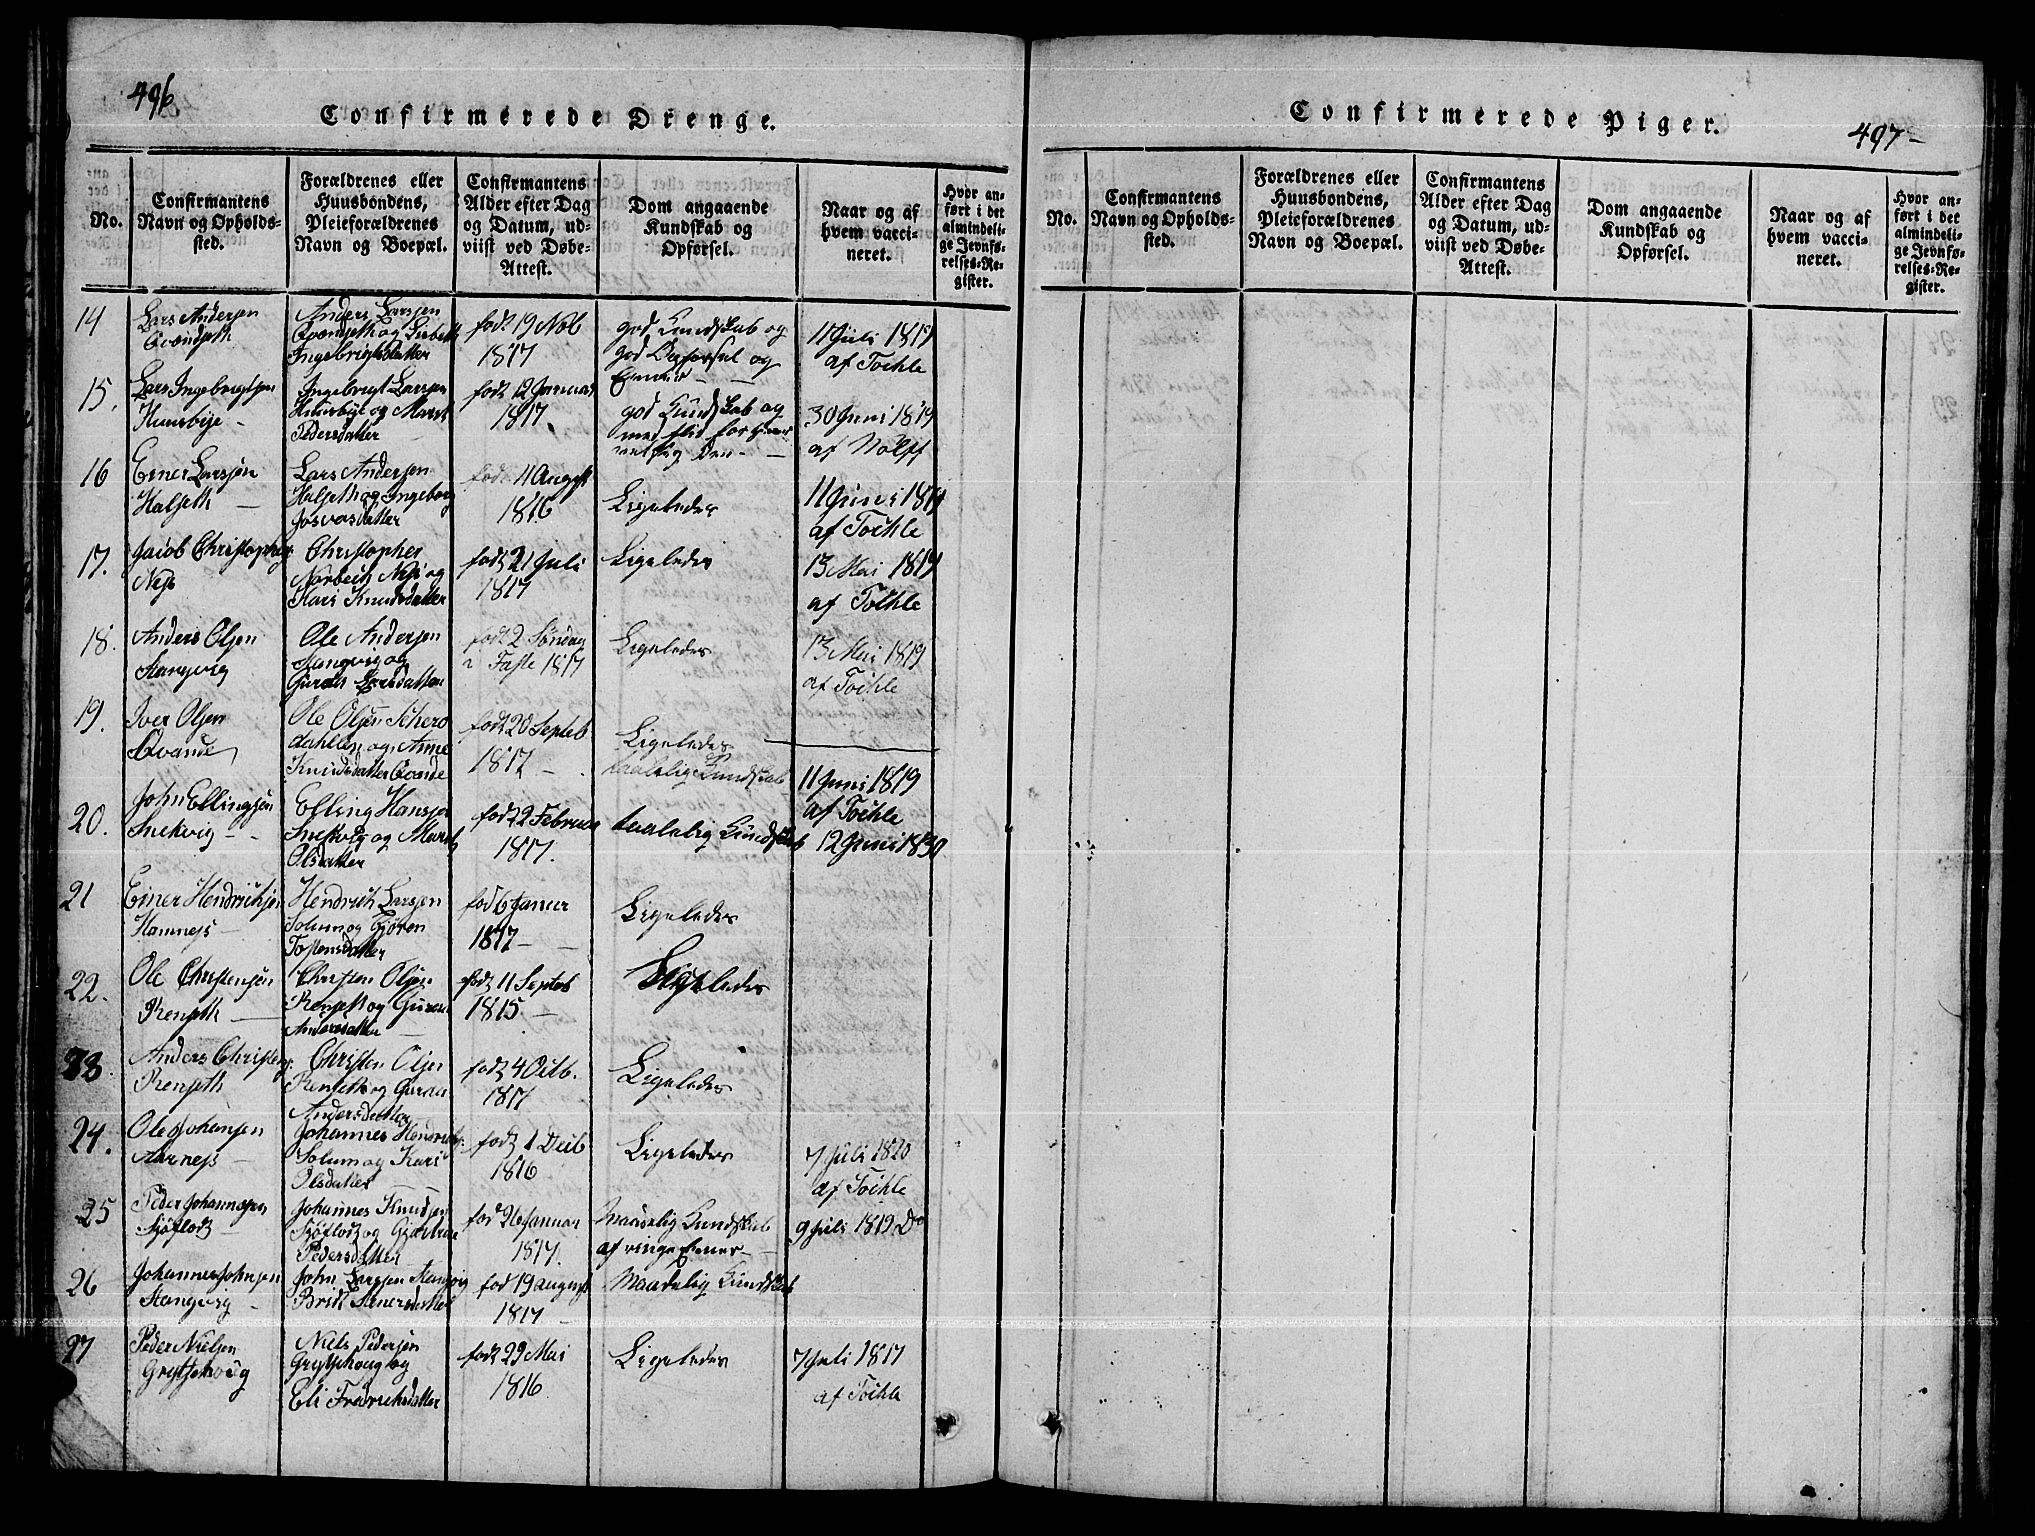 496
Confirmerede Drenge.
No.
Confirmantens
Navn og Opholds-
sted.
Forældrenes eller
Huusbondens,
Pleieforældrenes
Navn og Boepæl.
Confirmantens
Alder efter Dag
og Datum, ud-
viist ved Døbe-
Attest.
Dom angaaende
Kundskab og
Opførsel.
Naar og af
hvem vacci-
neret.
Hvor an-
ført i det
almindeli-
ge Jevnfø-
relses-Re-
gister.
14
Lars Andersen
Qvandseth
Anders Larsen
Qvandseth og Lisbeth
Ingebrigtsdatter
fodt 19 Nob
1817
god Kundskab og
god Opforsel og
Evner
11 Juli 1819
af Tochle
15.
Lars Ingebrigtsen
Huusbye -
Ingebrigt Larsen
Huusbye og Marit
Pedersdatter
fodt 12 Januar
1817.
god Kundskab og
med flid
30 Juni 1819
af Wolff
16
Einer Larsen
Halseth -
Lars Andersen
Halseth og Ingeborg
Josvasdatter
fodt 11 August
1816
Ligeledes
11 Juni 1819
af Tochle
17.
Jacob Christophers:
Ness
Christopher
Norbech Ness og
Kari Knudsdatter
fodt 21 Juli
1817
Ligeledes
13 Mai 1819
af Tochle
18.
Anders Olsen
Stangvig
Ole Andersen
Stangvig og
Guroe Larsdatter
fodt 2 Søndag
i Faste 1817
Ligeledes
13 Mai 1819
af Tochle
19.
Iver Olsen
Qvande
Ole Olsen
dahlen og Anne
Knudsdatter Qvande
fodt 20 Septeb
1817 -
Ligeledes
taalelig Kundskab
11 Juni 1819
af Tochle
20.
John Ellingsen
Snekvig -
Elling Hansen
Snekvig og Marit
Olsdatter
fodt 22 Februar
1817.
taalelig Kundskab
12 Juni 1830
21
Einer Hendrichsen
Hamnes -
Hendrich Larsen
Solum og Gjøren
Tostensdatter
fod 6 Januer
1817 -
Ligeledes
22.
Ole Christensen
Renseth
Christen Olsen
Renseth og Guru
Andersdatter
fodt 11 Septeb
1815 -
Ligeledes
23
Anders Christens:
Renseth
Christen Olsen
Renseth og Guru
Andersdatter
fodt 4 Octb.
1817
Ligeledes
24.
Ole Johansen
Aarnes -
Johannes Hendrichs:
Solum og Kari
Olsdatter
fodt 1 Deib
1816
Ligeledes
7 Juli 1820
af Tochle
25
Peder Johannesen
Sjøflodt
Johannes Knudsen
Sjøflodt og Gjertrue
Pedersdatter
fod 26 Januar
1817.
Maadelig Kundskab
af ringe Evner -
9 Juli 1819 Do
26
Johannes Johnsen
Stangvig -
John Larsen Stangvig
Bridt Stenersdatter
fod 19 august
1817 -
Maadelig Kundskab
27
Peder Nielsen
Grytsehoug
Niels Pedersen
Grytsehoug og
Eli Fredrichsdatter
fodt 29 Mai
1816
Ligeledes
7 Juli 1817
af Tochle
Confirmerede Piger.
497 -
No.
Confirmantens
Navn og Opholds-
sted.
Forældrenes eller
Huusbondens,
Pleieforældrenes
Navn og Boepæl.
Confirmantens
Alder efter Dag
og Datum, ud-
viist ved Døbe-
Attest.
Dom angaaende
Kundskab og
Opførsel.
Naar og af
hvem vacci-
neret.
Hvor an-
ført i det
almindeli-
ge Jevnfø-
relses-Re-
gister.